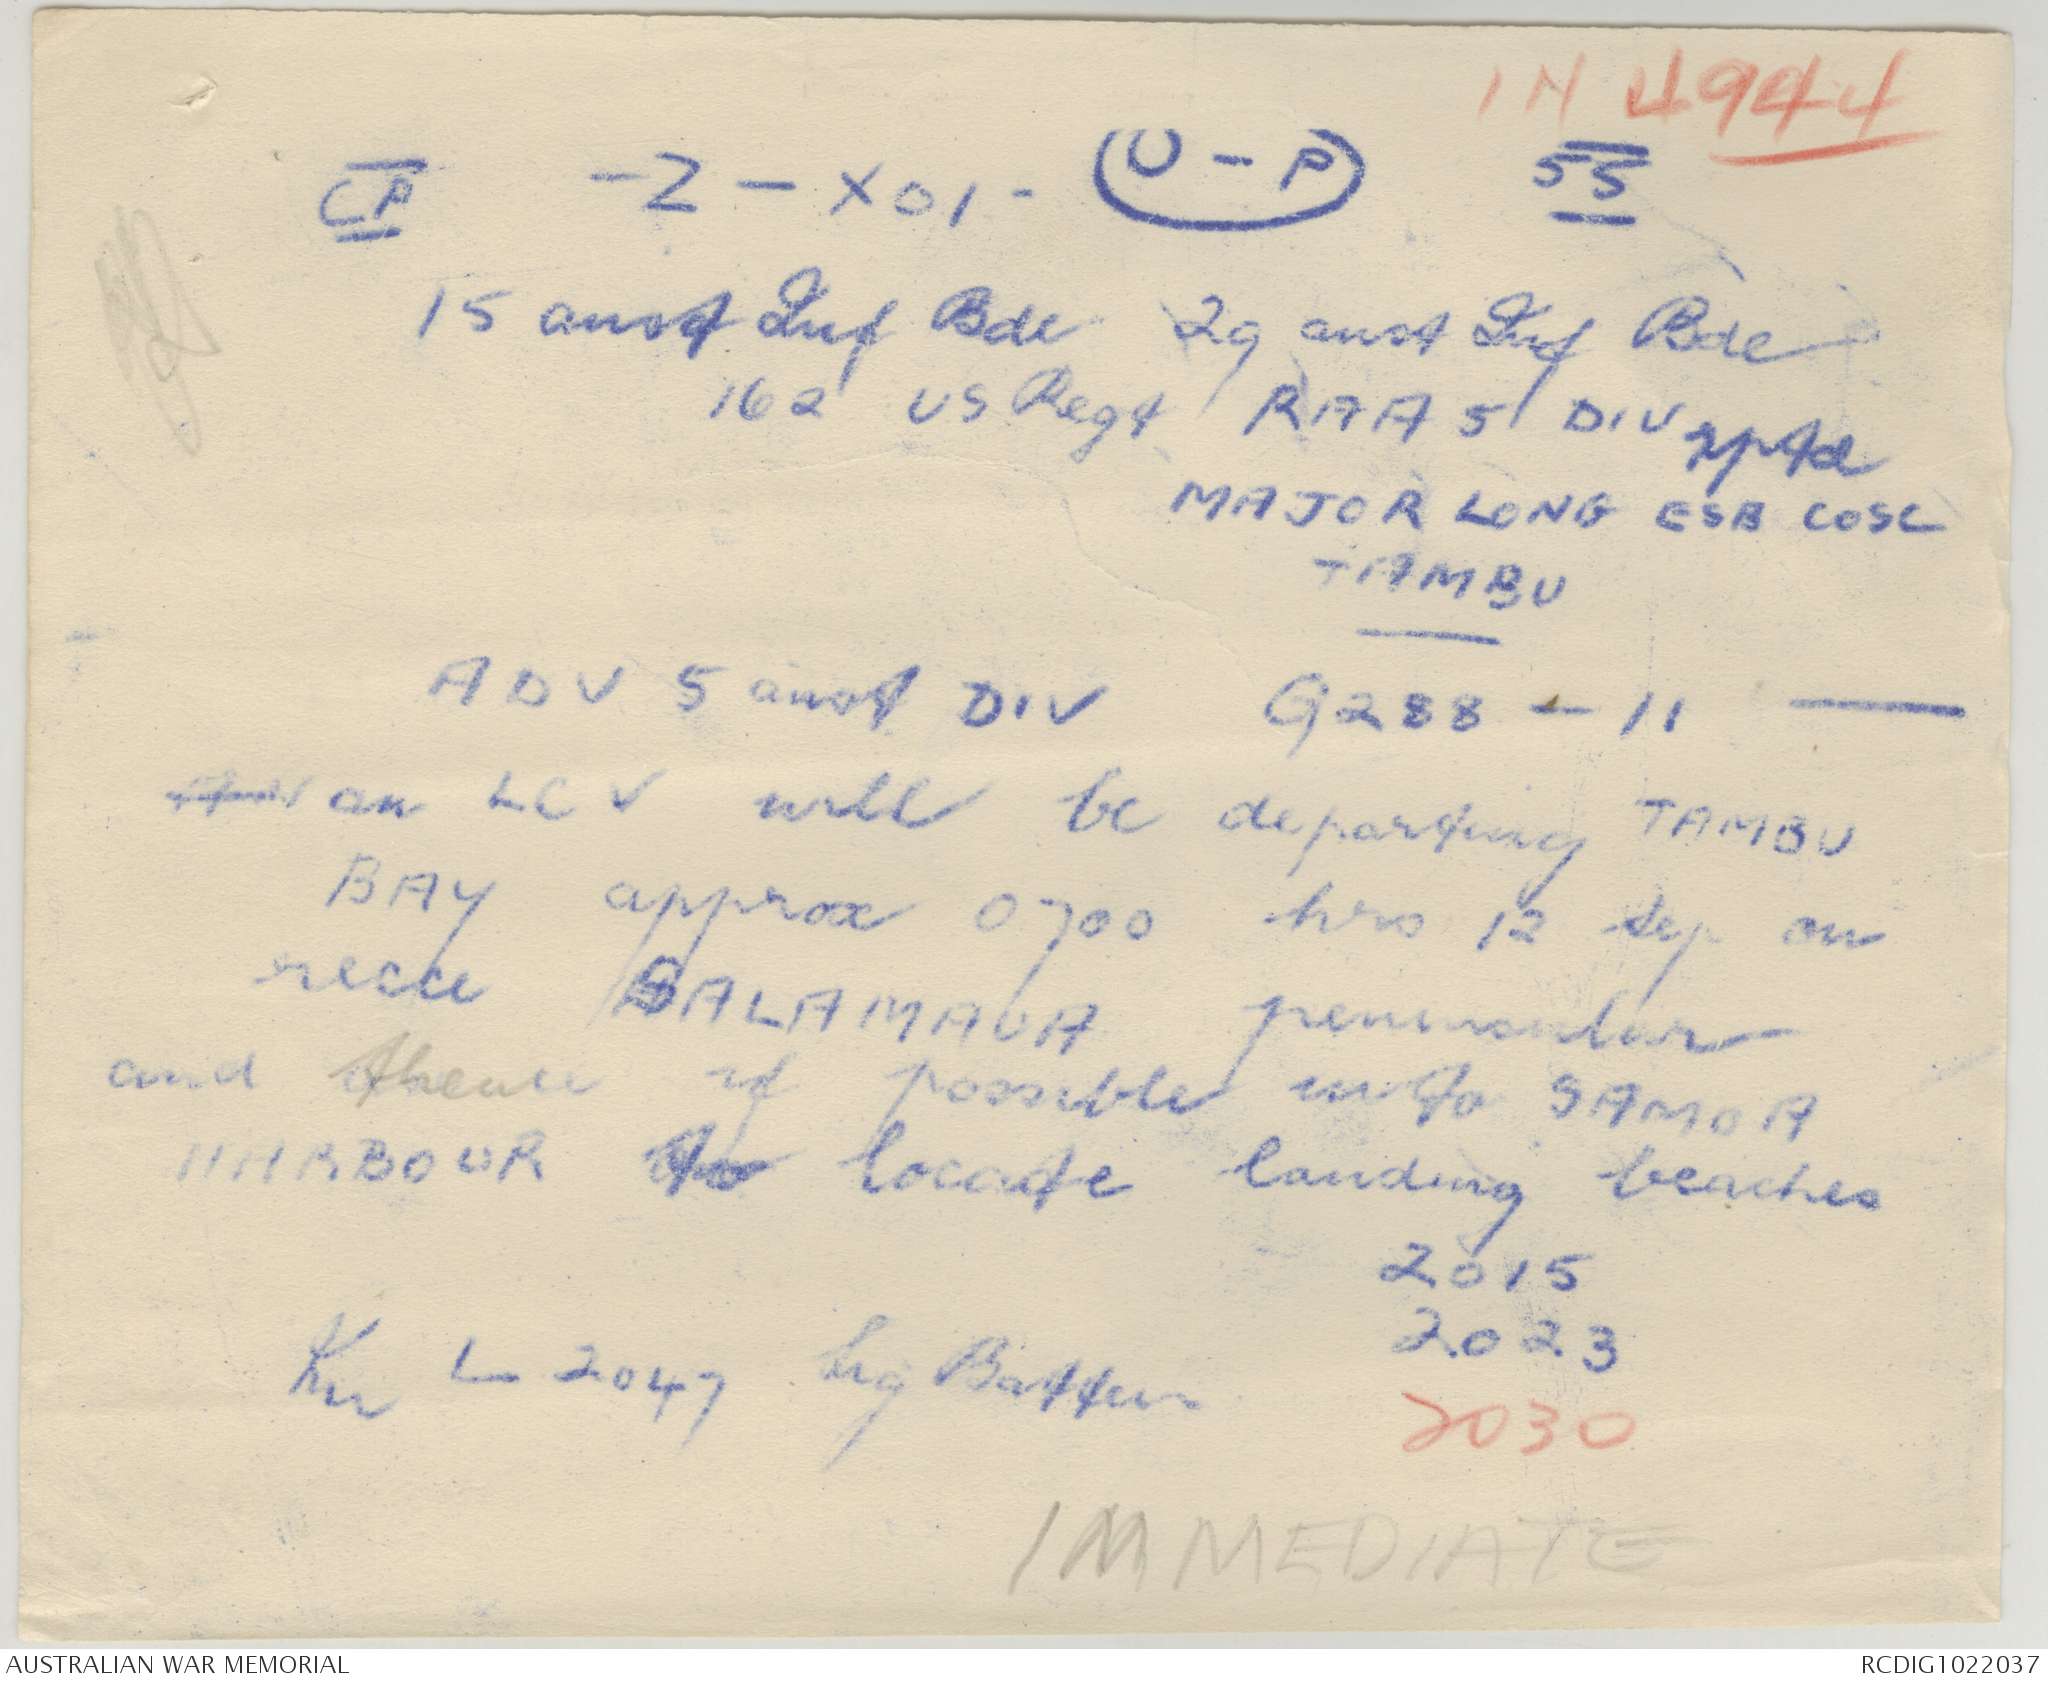 IN 4944
CP - Z - X01 - U-P 55
15 aust Inf Bde 29 aust Inf Bde
162 US Regt RAA 5 DIV rptd
MAJOR LONG ESB COSC
TAMBU
ADV 5 aust DIV G288 - 11
an LCV will be departing TAMBU
BAY approx 0700 hrs 12 sep on
recce SALAMAUA peninsular
and thence if possible into SAMOA
HARBOUR to locate landing beaches
2015
2023
L 2047 Sig Batten
2030
IMMEDIATE
AUSTRALIAN WAR MEMORIAL RCDIG1022037